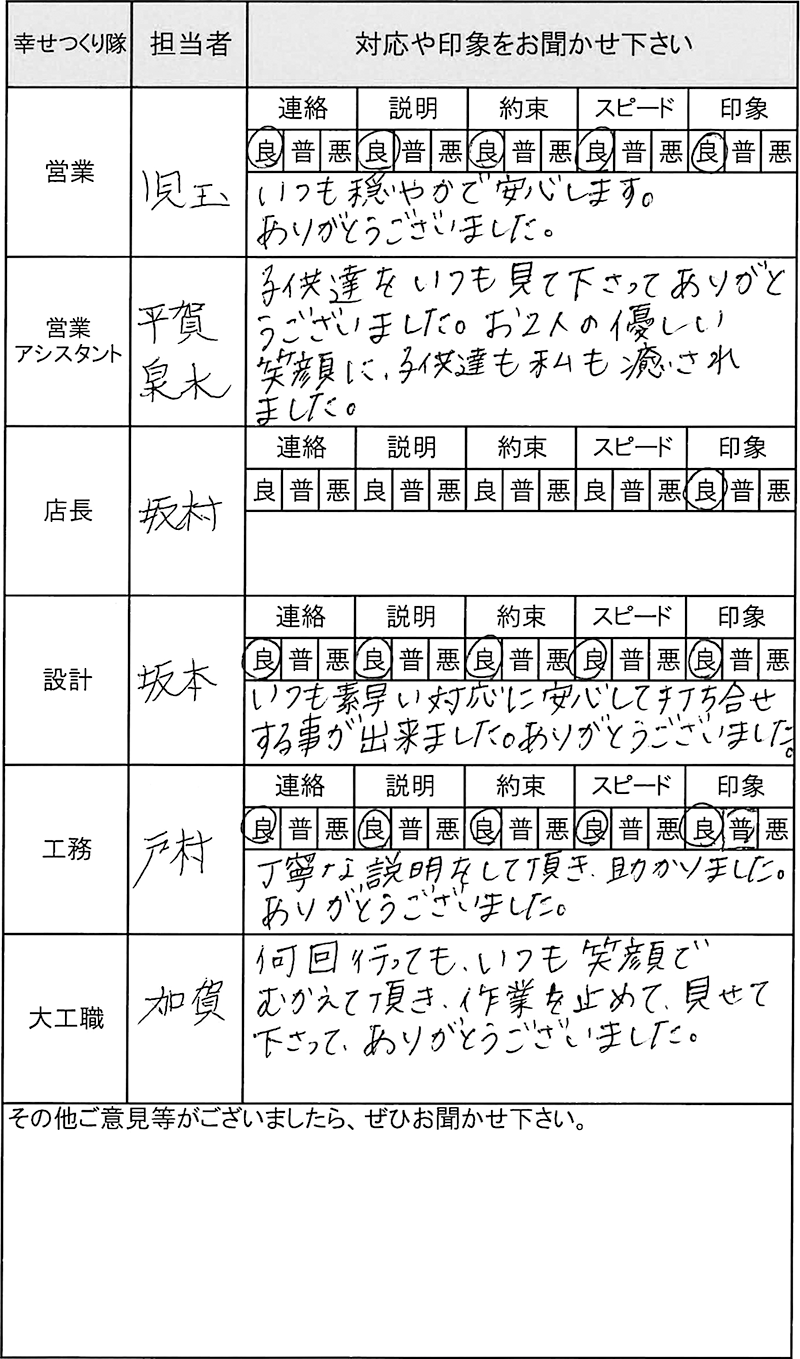 幸せつくり隊 担当者 対応や印象をお聞かせ下さい
営業 児玉
連絡 説明 約束 スピード 印象
良 普 悪 良 普 悪 良 普 悪 良 普 悪 良 普 悪
いつも穏やかで安心します。
ありがとうございました。
営業
アシスタント
平賀
泉水
子供達をいつも見て下さってありがと
うございました。お2人の優しい
笑顔に、子供達も私も癒され
ました。
店長 坂村
連絡 説明 約束 スピード 印象
良 普 悪 良 普 悪 良 普 悪 良 普 悪 良 普 悪
設計 坂本
連絡 説明 約束 スピード 印象
良 普 悪 良 普 悪 良 普 悪 良 普 悪 良 普 悪
いつも素早い対応に安心して打ち合せ
する事が出来ました。ありがとうございました。
工務 戸村
連絡 説明 約束 スピード 印象
良 普 悪 良 普 悪 良 普 悪 良 普 悪 良 普 悪
丁寧な説明をして頂き、助かりました。
ありがとうございました。
大工職 加賀
何回行っても、いつも笑顔で
むかえて頂き、作業を止めて、見せて
下さって、ありがとうございました。
その他ご意見等がございましたら、ぜひお聞かせ下さい。